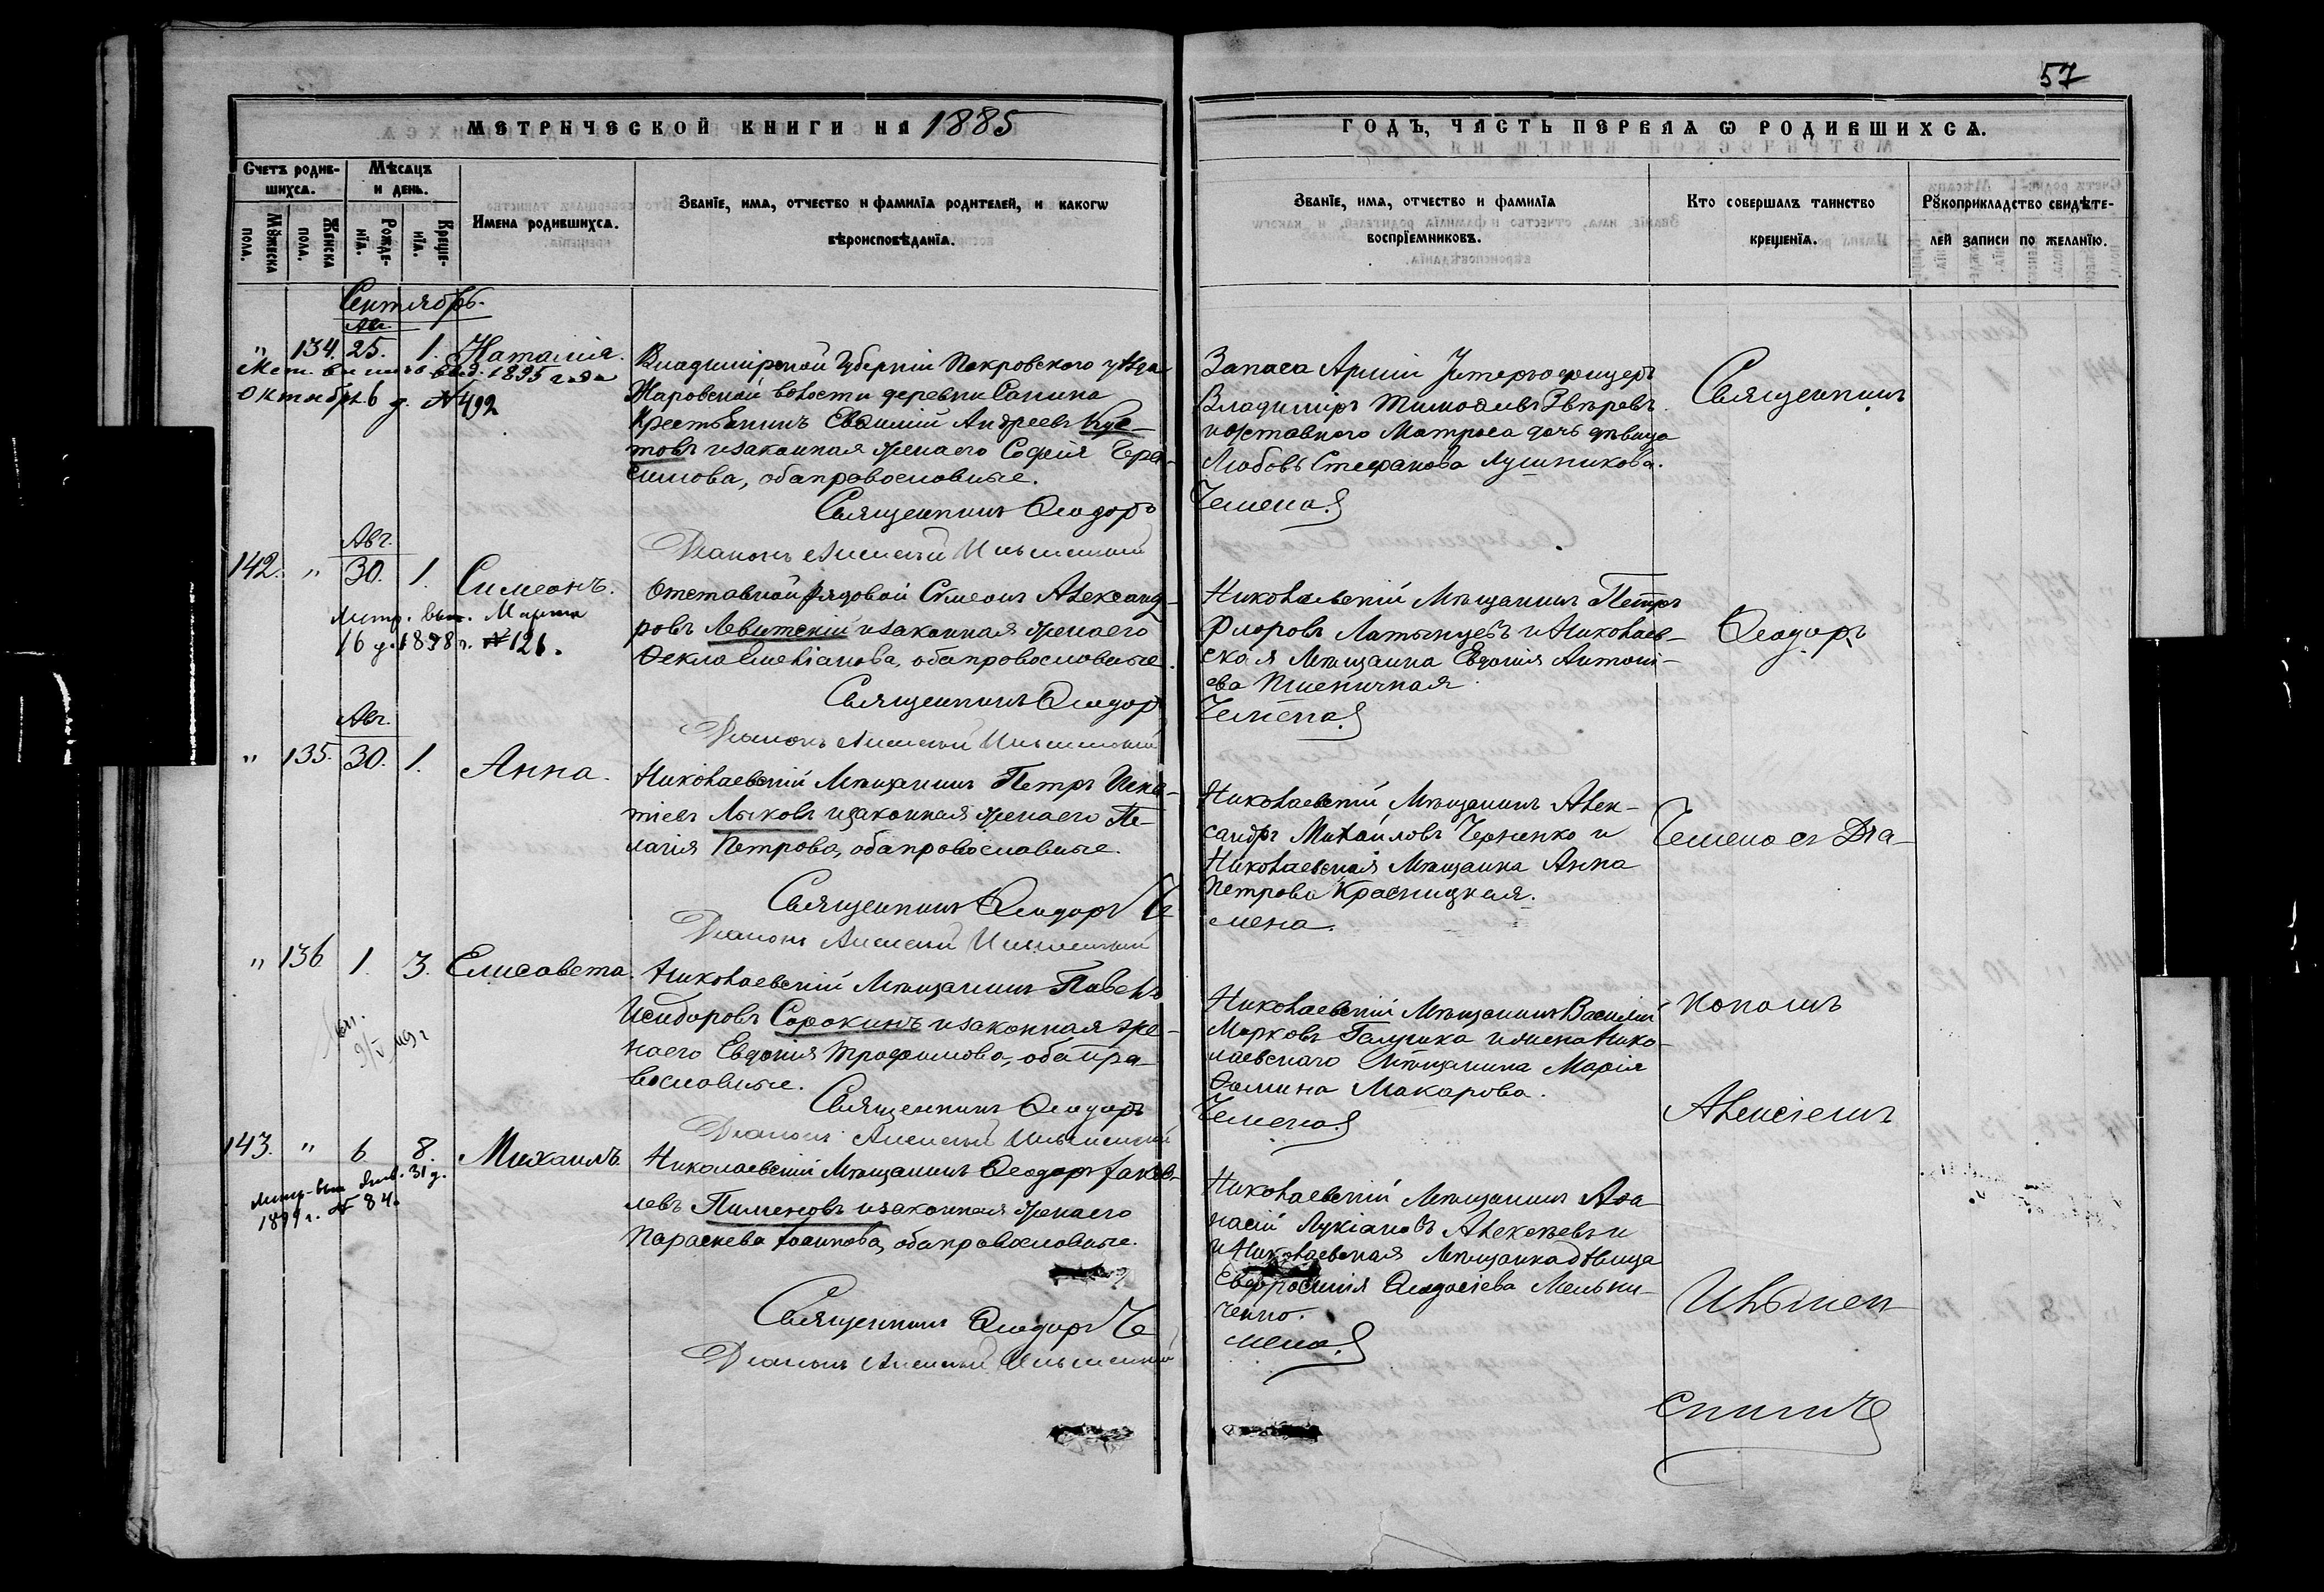 57
МЕТРИЧЕСКОЙ КНИГИ НА 1885
ГОДЪ, ЧАСТЬ ПЕРВАЯ Ѡ РОДИВШИХСЯ.
Счетъ родив-
шихся.
Мѣсяцъ
и день.
Мꙋжеска
пола.
Женска
пола.
Рожде-
нїя.
Креще-
нїя.
Имена родившихся.
Званїе, имя, отчество и фамилїя родителей, и какогѡ
вѣроисповѣданїя.
Званїе, имя, отчество и фамилїя
воспрїемниковъ.
Кто совершалъ таинство
крещенїя.
Рꙋкоприкладство свидѣте-
лей записи по желанїю.
Сентябрь.
Ав.
" 134. 25. 1. Наталия.
1895 года
Октября 6 д. №492
Владимірской Губерніи Покровскаго уѣзда
Жаровской волости деревни Санина
Крестьянинъ Евѳимій Андреевъ Кус-
товъ и законная жена его Софія Гера-
симова, оба православные.
Священникъ Ѳеодоръ
Діаконъ Алексій Ильменскій
Запаса Арміи Унтеръ офицеръ
Владиміръ Тимоѳеевъ Звѣревъ
и отставного Матроса дочь дѣвица
Любовь Стефанова Лушникова.
Чемена.
Священникъ
Авг.
142. " 30. 1. Симеонъ.
Метр. вып. Марта
16 д. 1898 г. №121.
Отставной рядовой Симеонъ Александ-
ровъ Левитскій и законная жена его
Ѳекла Емеліанова, оба православные.
Священникъ Ѳеодоръ
Діаконъ Алексій Ильменскій
Николаевскій Мѣщанинъ Петръ
Флоровъ Латынцевъ и Николаев-
ская Мѣщанка Евдокія Антоні-
ева Пшеничная
Чемена.
Ѳеодоръ
Авг.
" 135. 30. 1. Анна.
Николаевскій Мѣщанинъ Петръ Игна-
тіевъ Лыковъ и законная жена его Пе-
лагія Петрова, оба православные.
Священникъ Ѳеодоръ Че
Діаконъ Алексій Ильменскій
Николаевскій Мѣщанинъ Алек-
сандръ Михайловъ Черненко и
Николаевская Мѣщанка Анна
Петрова Красницкая.
мена.
Чемена съ Діа-
" 136 1. 3. Елисавета.
Николаевскій Мѣщанинъ Павелъ
Исидоровъ Сорокинъ и законная же-
на его Евдокія Трофимова, оба пра-
вославные.
Священникъ Ѳеодоръ
Діаконъ Алексій Ильменскій
Николаевскій Мѣщанинъ Василій
Марковъ Галушка и жена Нико-
лаевскаго Мѣщанина Марія
Ѳомина Макарова.
Чемена.
кономъ
Алексіемъ
143. " 6 8. Михаилъ
Метр. вып. Янв. 31 д.
1899 г. № 84.
Николаевскій Мѣщанинъ Ѳеодоръ Іаков-
левъ Пименовъ и законная жена его
Параскева Іоаннова, оба православные.
Священникъ Ѳеодоръ Че
Діаконъ Алексій Ильменскій
Николаевскій Мѣщанинъ Аѳа-
насій Лукіановъ Алексѣевъ и
и Николаевская Мѣщанка дѣвица
Евфросинія Ѳеодосіева Мельни-
ченко.
мена.
Ильмен
скимъ